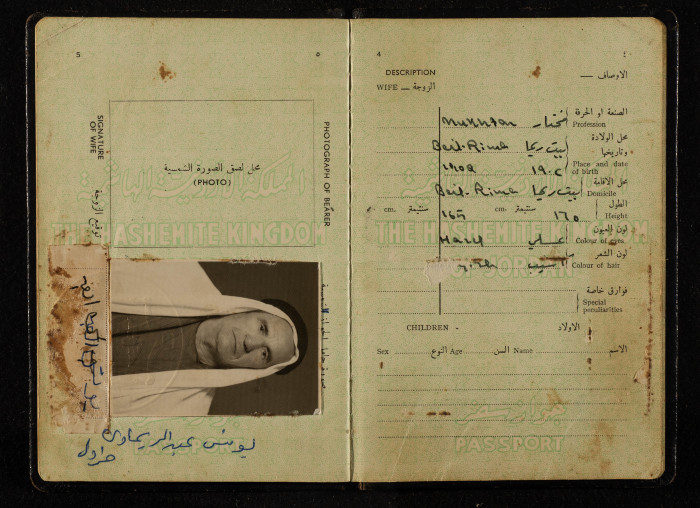 5
٥
محل لصق الصورة الشمسية
(PHOTO)
SIGNATURE OF WIFE
توقيع الزوجة
PHOTOGRAPH OF BEARER
THE HASHEMITE KINGDOM
يونس عبد الريماوي
4
٤
DESCRIPTION
الاوصاف —
WIFE — الزوجة
الصنعة او الحرفة
Profession
Mukhtar مختار
محل الولادة
وتاريخها
Place and date of birth
Beit-Rima بيت ريما
محل الاقامة
Domicile
Beit-Rima بيت ريما
الطول
Height
cm. سنتيمتر cm. سنتيمتر
165 ١٦٥
لون العيون
Colour of eyes
Hazel عسلي
لون الشعر
Colour of hair
THE HASHEMITE KINGDOM
OF JORDAN
فوارق خاصة
Special peculiarities
CHILDREN - الاولاد
Sex النوع Age السن Name الاسم
جواز سفر
PASSPORT
PASSPORT